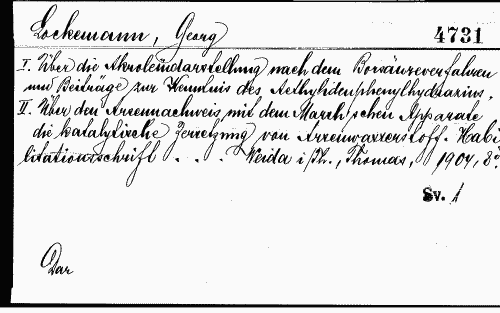 Lockemann, Georg
4731
I. Über die Akroleindarstellung nach dem Borsäureverfahren
und Beiträge zur Kenntnis des Aethylidenphenylhydrazins.
II. Über den Arsennachweis mit dem Marsh'schen Apparate
die katalytische Zersetzung von Arsenwasserstoff. Habi
litationsschrift . . . Weida i/Th., Thomas, 1904, 8°.
Sv. 1
Dar